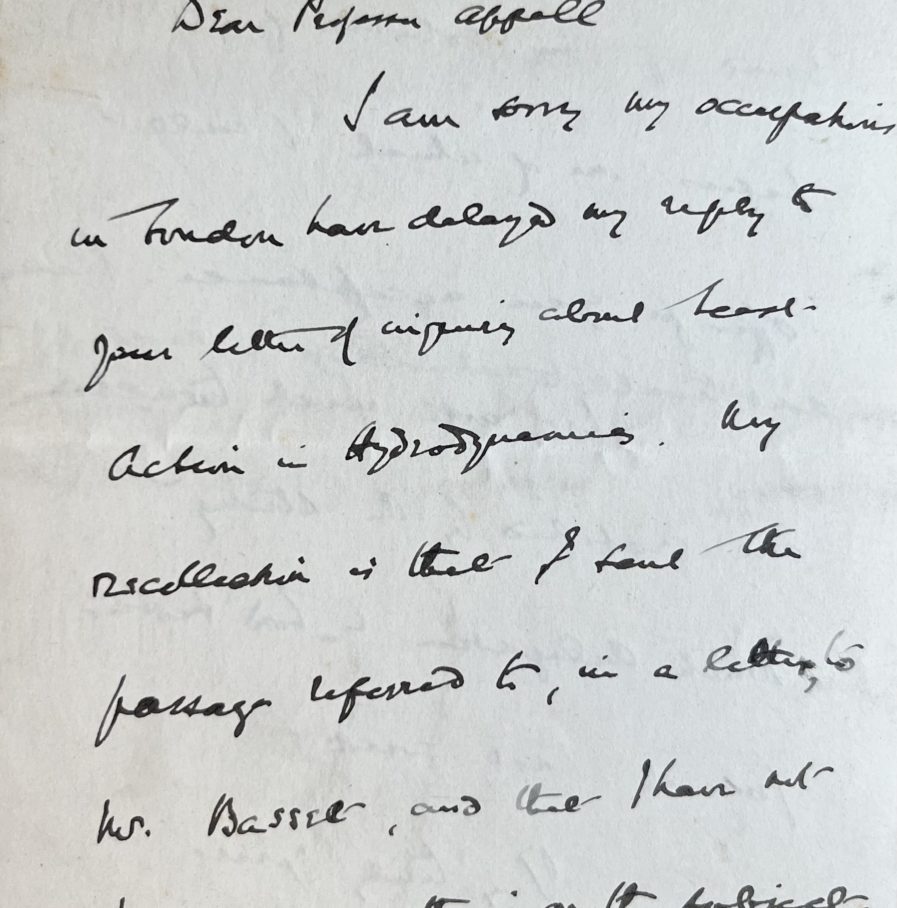 Dear Professor Appell
I am sorry my occupations
in London have delayed my reply to
your letter of inquiry about Least
Action in Hydrodynamics. My
recollection is that I sent the
passage referred to, in a letter, to
Mr. Basset, and that I have not
on the subject